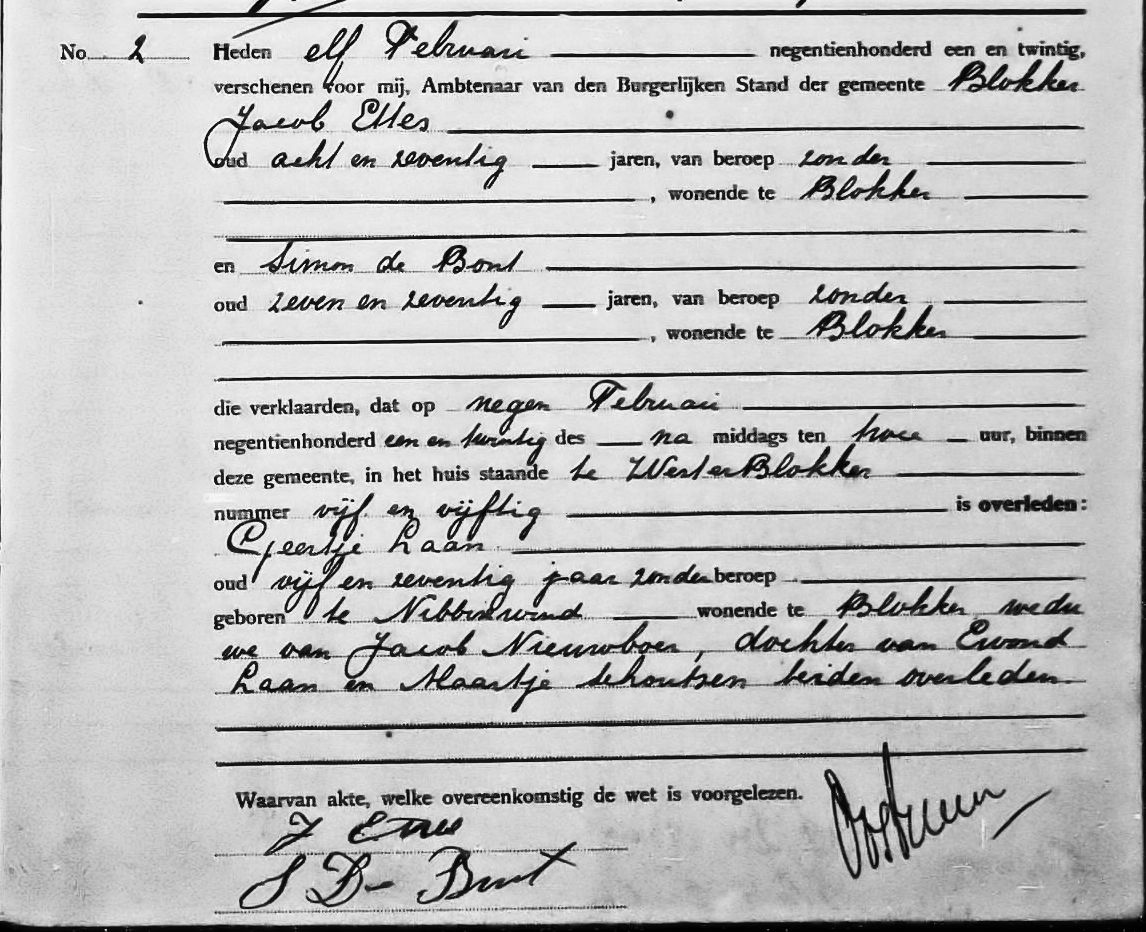 No. 2 Heden elf Februari negentienhonderd een en twintig,
verschenen voor mij, Ambtenaar van den Burgerlijken Stand der gemeente Blokker
Jacob Ettes
oud acht en zeventig jaren, van beroep zonder
, wonende te Blokker
en Simon de Bont
oud zeven en zeventig jaren, van beroep zonder
, wonende te Blokker
die verklaarden, dat op negen Februari
negentienhonderd een en twintig des na middags ten twee uur, binnen
deze gemeente, in het huis staande te WesterBlokker
nummer vijf en vijftig is overleden:
Geertje Laan
oud vijf en zeventig jaar zonder beroep
geboren te Nibbixwoud wonende te Blokker wedu
we van Jacob Nieuwboer, dochter van Ewoud
Laan en Maartje Schoutsen beiden overleden.
Waarvan akte, welke overeenkomstig de wet is voorgelezen.
J Ettes
S De Bont